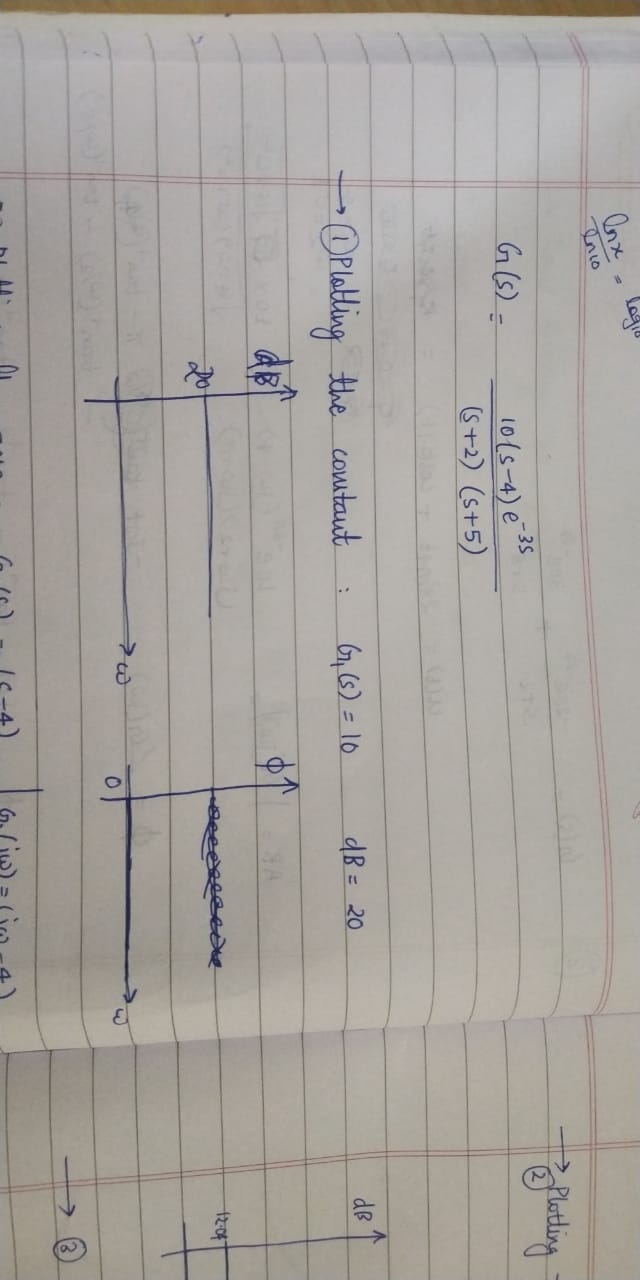 ln x / ln 10 = log10
G(s) = 10(s-4)e^-3s / (s+2)(s+5)
→ ① Plotting the constant : G₁(s) = 10 dB = 20
dB
20
ω
φ
0
ω
G₂(s) = (s-4) G₂(jω) = (jω-4)
→ ② Plotting
dB
12.04
→ ③